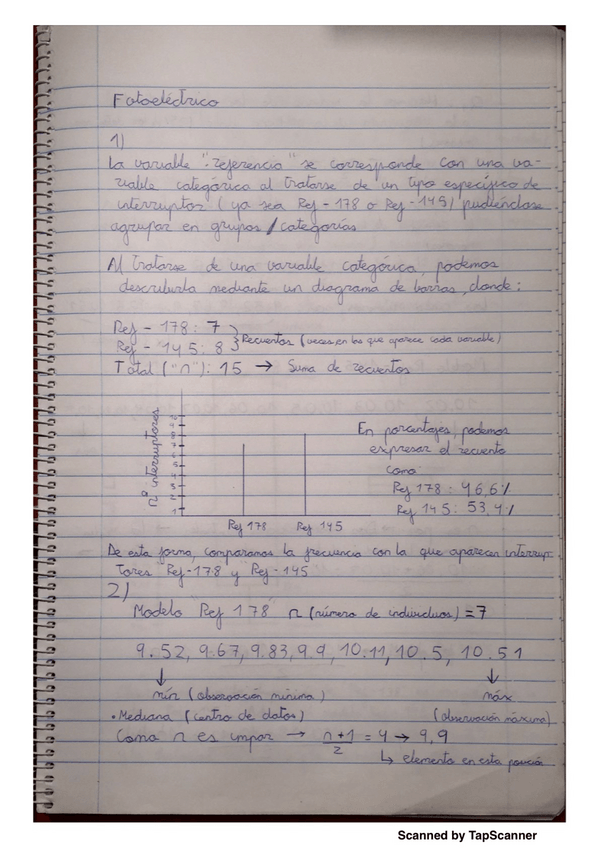 Fotoeléctrico
1)
La variable "referencia" se corresponde con una va-
riable categórica al tratarse de un tipo específico de
interruptor (ya sea Ref-178 o Ref-145) pudiéndose
agrupar en grupos/categorías
Al tratarse de una variable categórica, podemos
describirla mediante un diagrama de barras, donde:
Ref - 178: 7
Ref - 145: 8 } Recuentos (veces en las que aparece cada variable)
Total ("n"): 15 → Suma de recuentos
nº interruptores
1
2
3
4
5
6
7
8
Ref 178 Ref 145
En porcentajes, podemos
expresar el recuento
como
Ref 178: 46,6%
Ref 145: 53,4%
De esta forma, comparamos la frecuencia con la que aparecen interrup-
tores Ref-178 y Ref-145
2)
Modelo Ref 178 n (número de individuos) = 7
9.52, 9.67, 9.83, 9.9, 10.11, 10.5, 10.51
↓ ↓
mín (observación mínima) máx
• Mediana (centro de datos) (observación máxima)
Como n es impar → n+1/2 = 4 → 9,9
↳ elemento en esta posición
Scanned by TapScanner